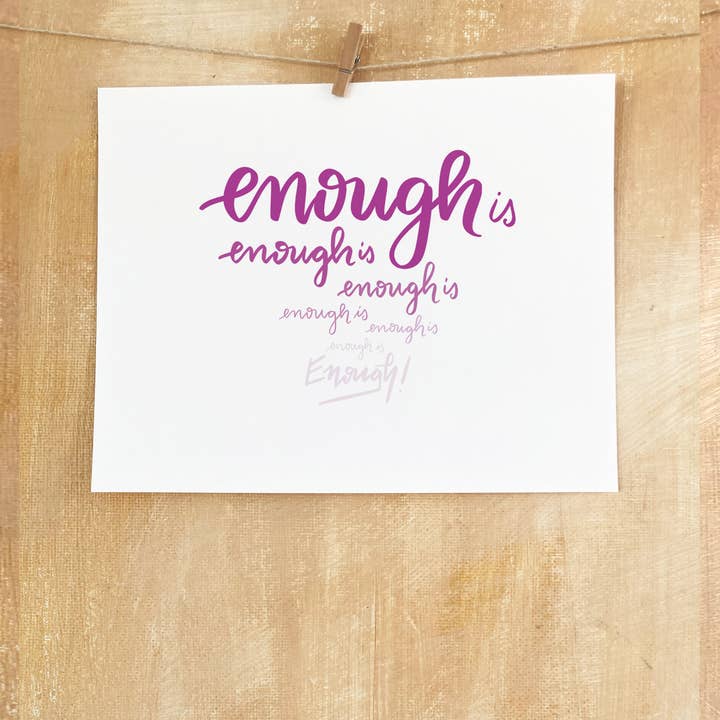 enough is
enough is
enough is
enough is
enough is
enough is
Enough!